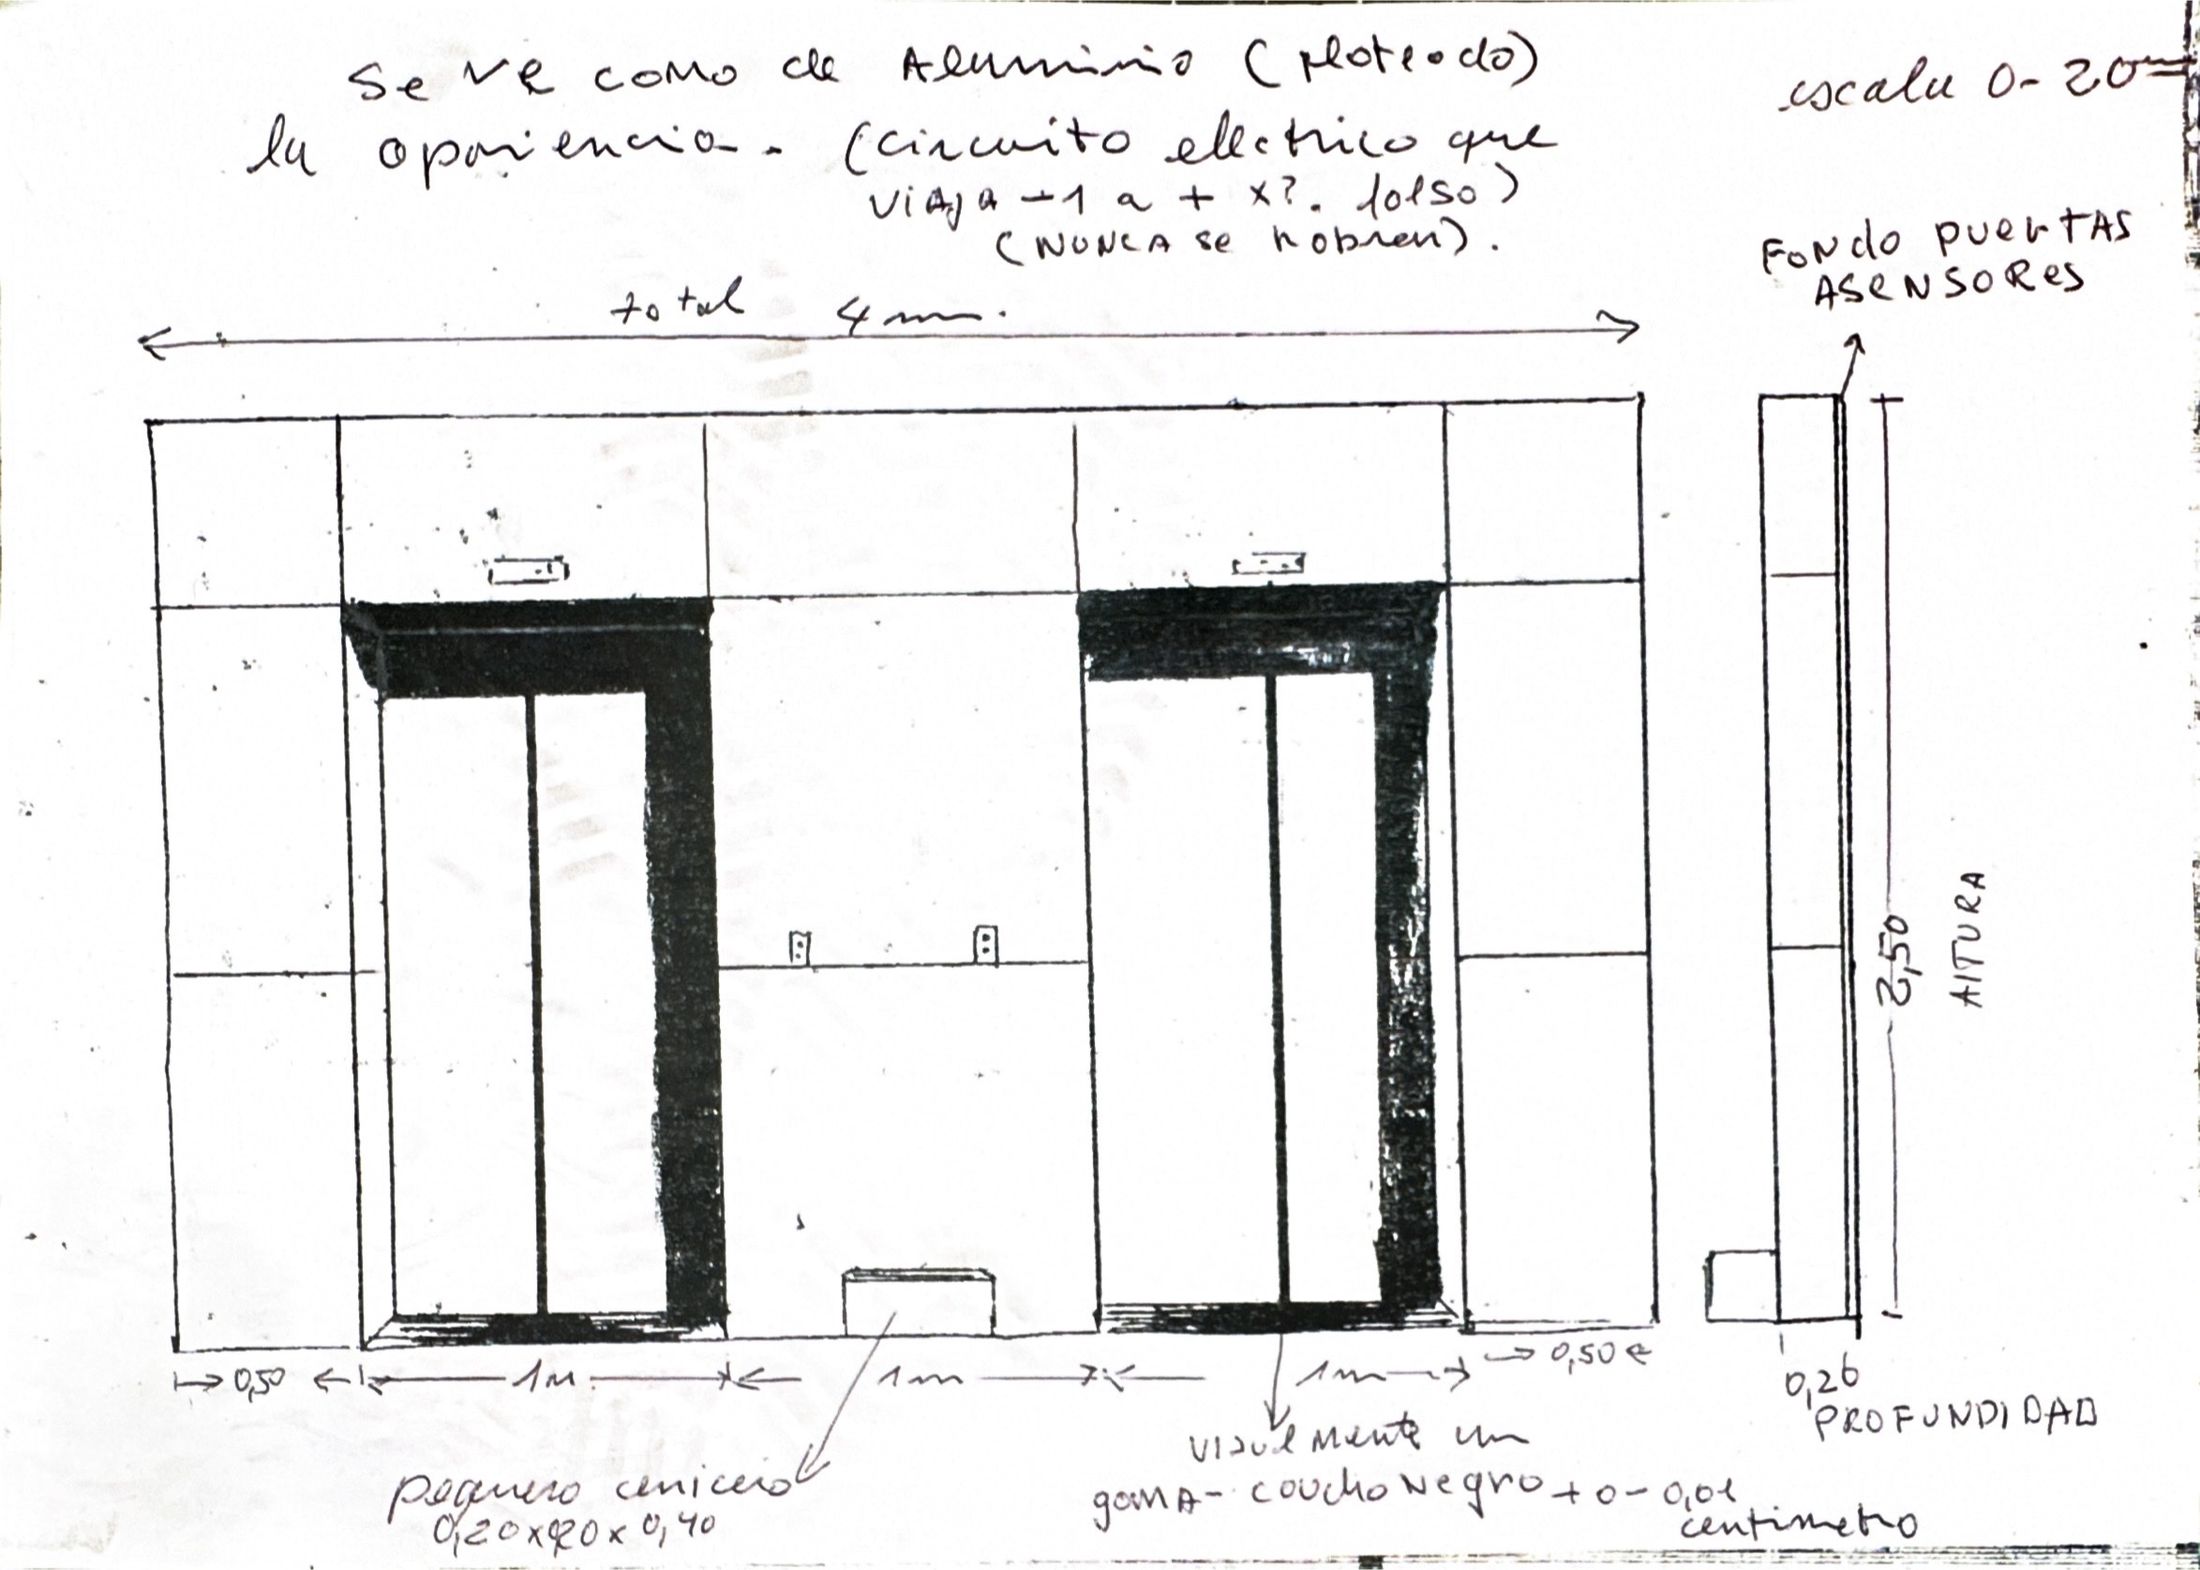 se ve como de Aluminio (ploteodo)
la opariencia. (circuito ellctrico que
viAjA -1 a + x?. folso)
(NUNCA se hobren).
escala 0-20
total 4 m.
FoNdo pueRtAS
ASeNSoRes
2,50
AlTURA
0,50
1m.
1m
1m
0,50
0,26
PROFUNDIDAD
pequeno cenicero
0,20x20x0,40
visuelmente un
gomA- coucho Negro + o - 0,01
centimetro